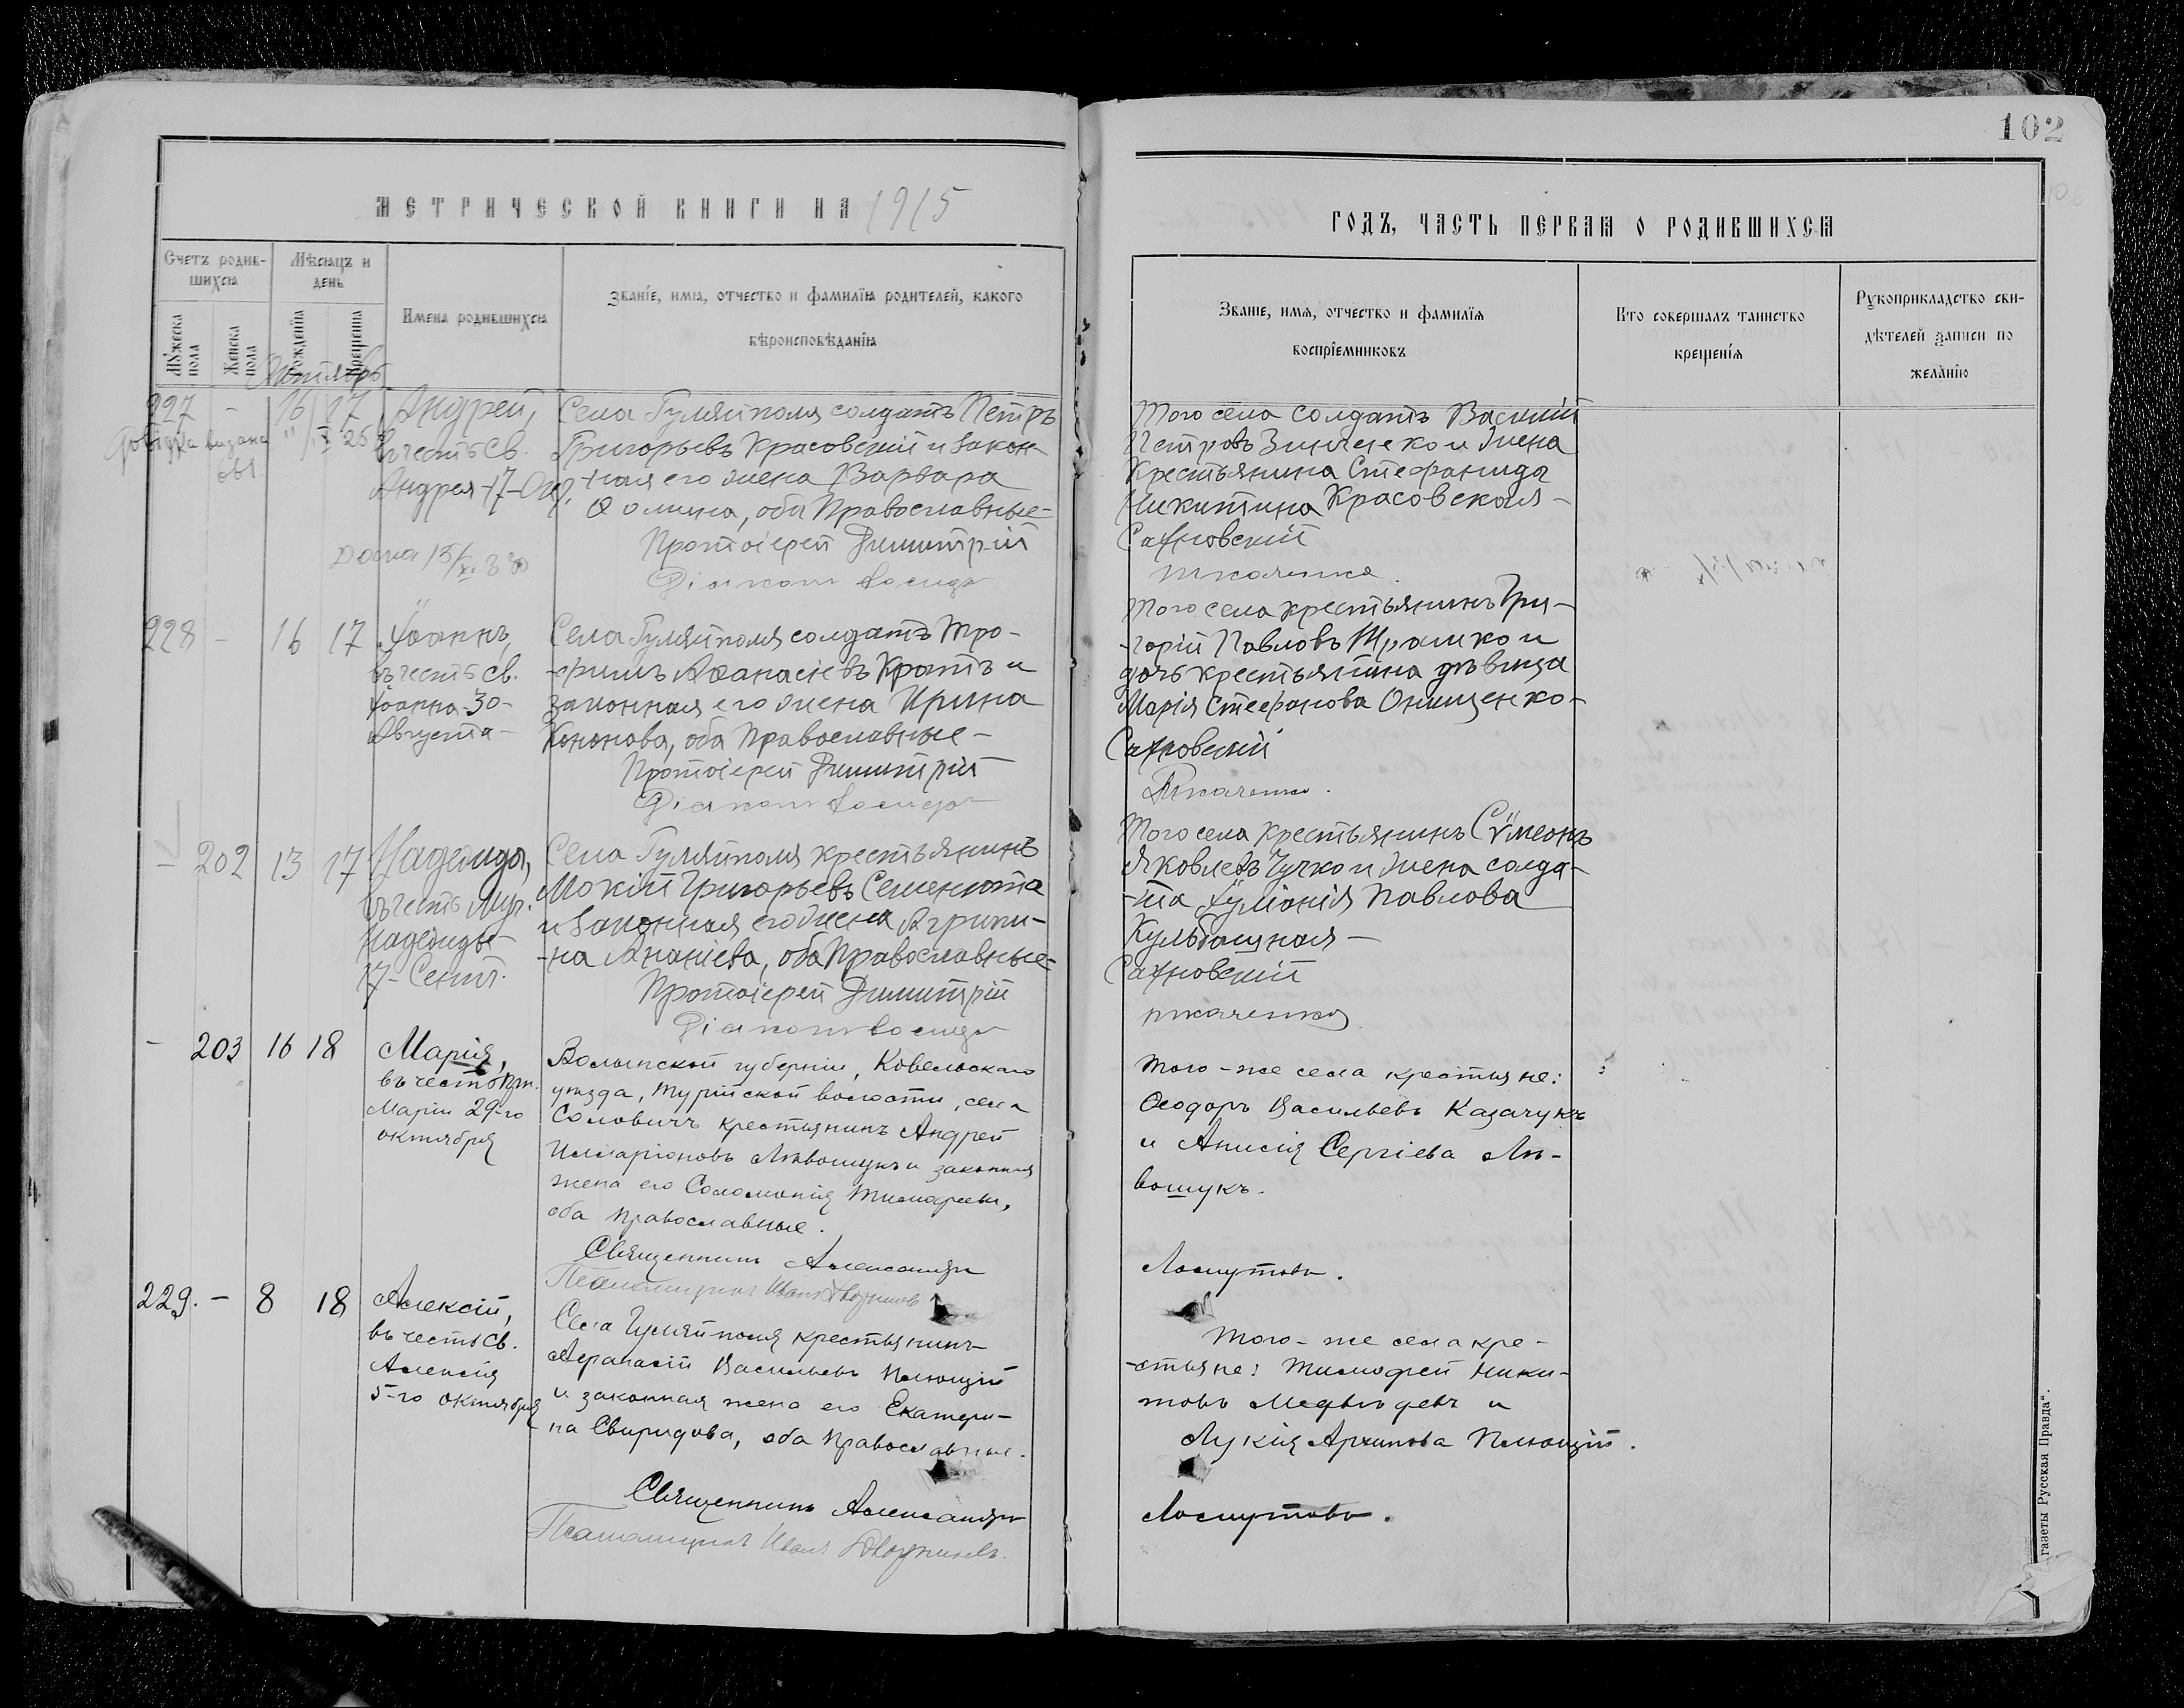 102
МЕТРИЧЕСКОЙ КНИГИ НА 1915
ГОДЪ, ЧАСТЬ ПЕРВАЯ О РОДИВШИХСЯ
Счетъ родив-
шихся
Мѣсяцъ и
день
Мужеска
пола
Женска
пола
Рожденія
Крещенія
Имена родившихся
Званіе, имя, отчество и фамилія родителей, какого
вѣроисповѣданія
Званіе, имя, отчество и фамилія
воспріемниковъ
Кто совершалъ таинство
крещенія
Рукоприкладство сви-
дѣтелей записи по
желанію
227 - 16 17
Андрей,
въ честь св.
Андрея-17-Окт.
Села Гуляйполя солдатъ Петръ
Григорьевъ Красовскій и закон-
ная его жена Варвара
Ѳомина, оба Православные-
Протоіерей Димитрій
Діаконъ
Того села солдатъ Василій
Петровъ Зинченко и жена
Крестьянина Стефанида
Никитина Красовская-
Сахновскій
Ткаченко.
228 - 16 17
Іоаннъ,
въ честь св.
Іоанна-30-
Августа-
Села Гуляйполя солдатъ Тро-
-фимъ Аѳанасіевъ Кротъ и
законная его жена Ирина
Кононова, оба Православные-
Протоіерей Димитрій
Діаконъ
Того села крестьянинъ Гри-
-горій Павловъ и
дочь крестьянина дѣвица
Марія Стефанова Онищенко-
Сахновскій
Ткаченко.
- 202 13 17
Надежда,
въ честь муч.
Надежды-
17-Сент.
Села Гуляйполя крестьянинъ
Мокій Григорьевъ Семенюта
и законная его жена Агрипи-
-на Ананіева, оба Православные-
Протоіерей Димитрій
Діаконъ
Того села крестьянинъ Сѵмеонъ
Яковлевъ Чучко и жена солда-
-та Іуліанія Павлова
Кульбашная-
Сахновскій
Ткаченко
- 203 16 18
Марія,
въ честь прп.
Маріи 29-го
октября
Волынской губерніи, Ковельскаго
уѣзда, Турійской волости, села
Соловичъ крестьянинъ Андрей
Илларіоновъ Лѣвошукъ и законная
жена его Соломонія Тимофеева,
оба православные.
Священникъ Александръ
Псаломщикъ Иванъ
Того-же села крестьяне:
Ѳеодоръ Васильевъ Казачукъ
и Анисія Сергіева Лѣ-
вошукъ.
Лоскутовъ.
229. - 8 18
Алексій,
въ честь св.
Алексія
5-го октября
Села Гуляйполя крестьянинъ
Аѳанасій Васильевъ Плющій
и законная жена его Екатери-
-на Свиридова, оба православные.
Священникъ Александръ
Псаломщикъ Иванъ
Того-же села кре-
-стьяне: Тимофей Ники-
товъ Медвѣдевъ и
Лукія Архипова Плющій.
Лоскутовъ.
газеты Русская Правда“.